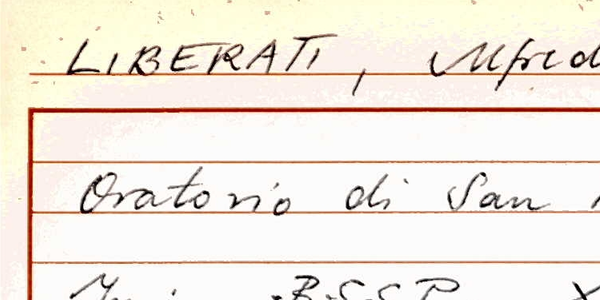 LIBERATI, Alfred
Oratorio di San
B.S.S.P.